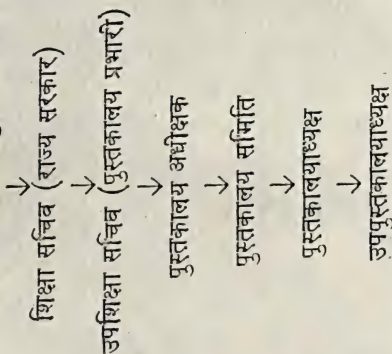 ↓
शिक्षा सचिव (राज्य सरकार)
↓
उपशिक्षा सचिव (पुस्तकालय प्रभारी)
↓
पुस्तकालय अधीक्षक
↓
पुस्तकालय समिति
↓
पुस्तकालयाध्यक्ष
↓
उपपुस्तकालयाध्यक्ष